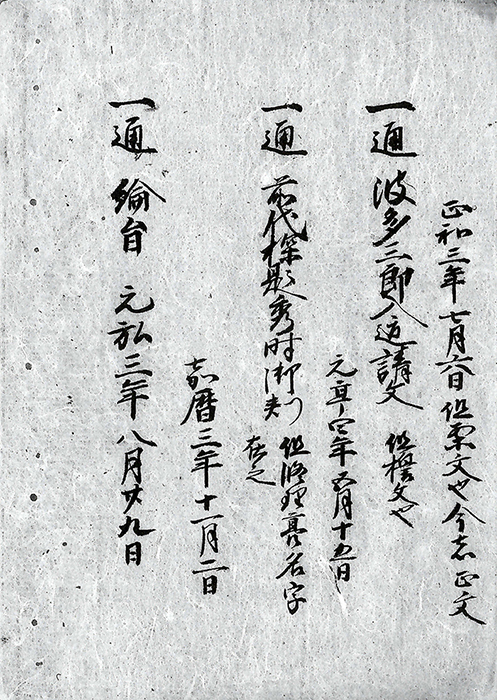 正和三年七月六日 但案文也今者正文
一通 波多三郎入道請文 但案文也
元亨四年五月十五日
一通 前代探題秀時御教 但修理亮名字
在之
嘉暦三年十一月二日
一通 綸旨 元弘三年八月廿九日